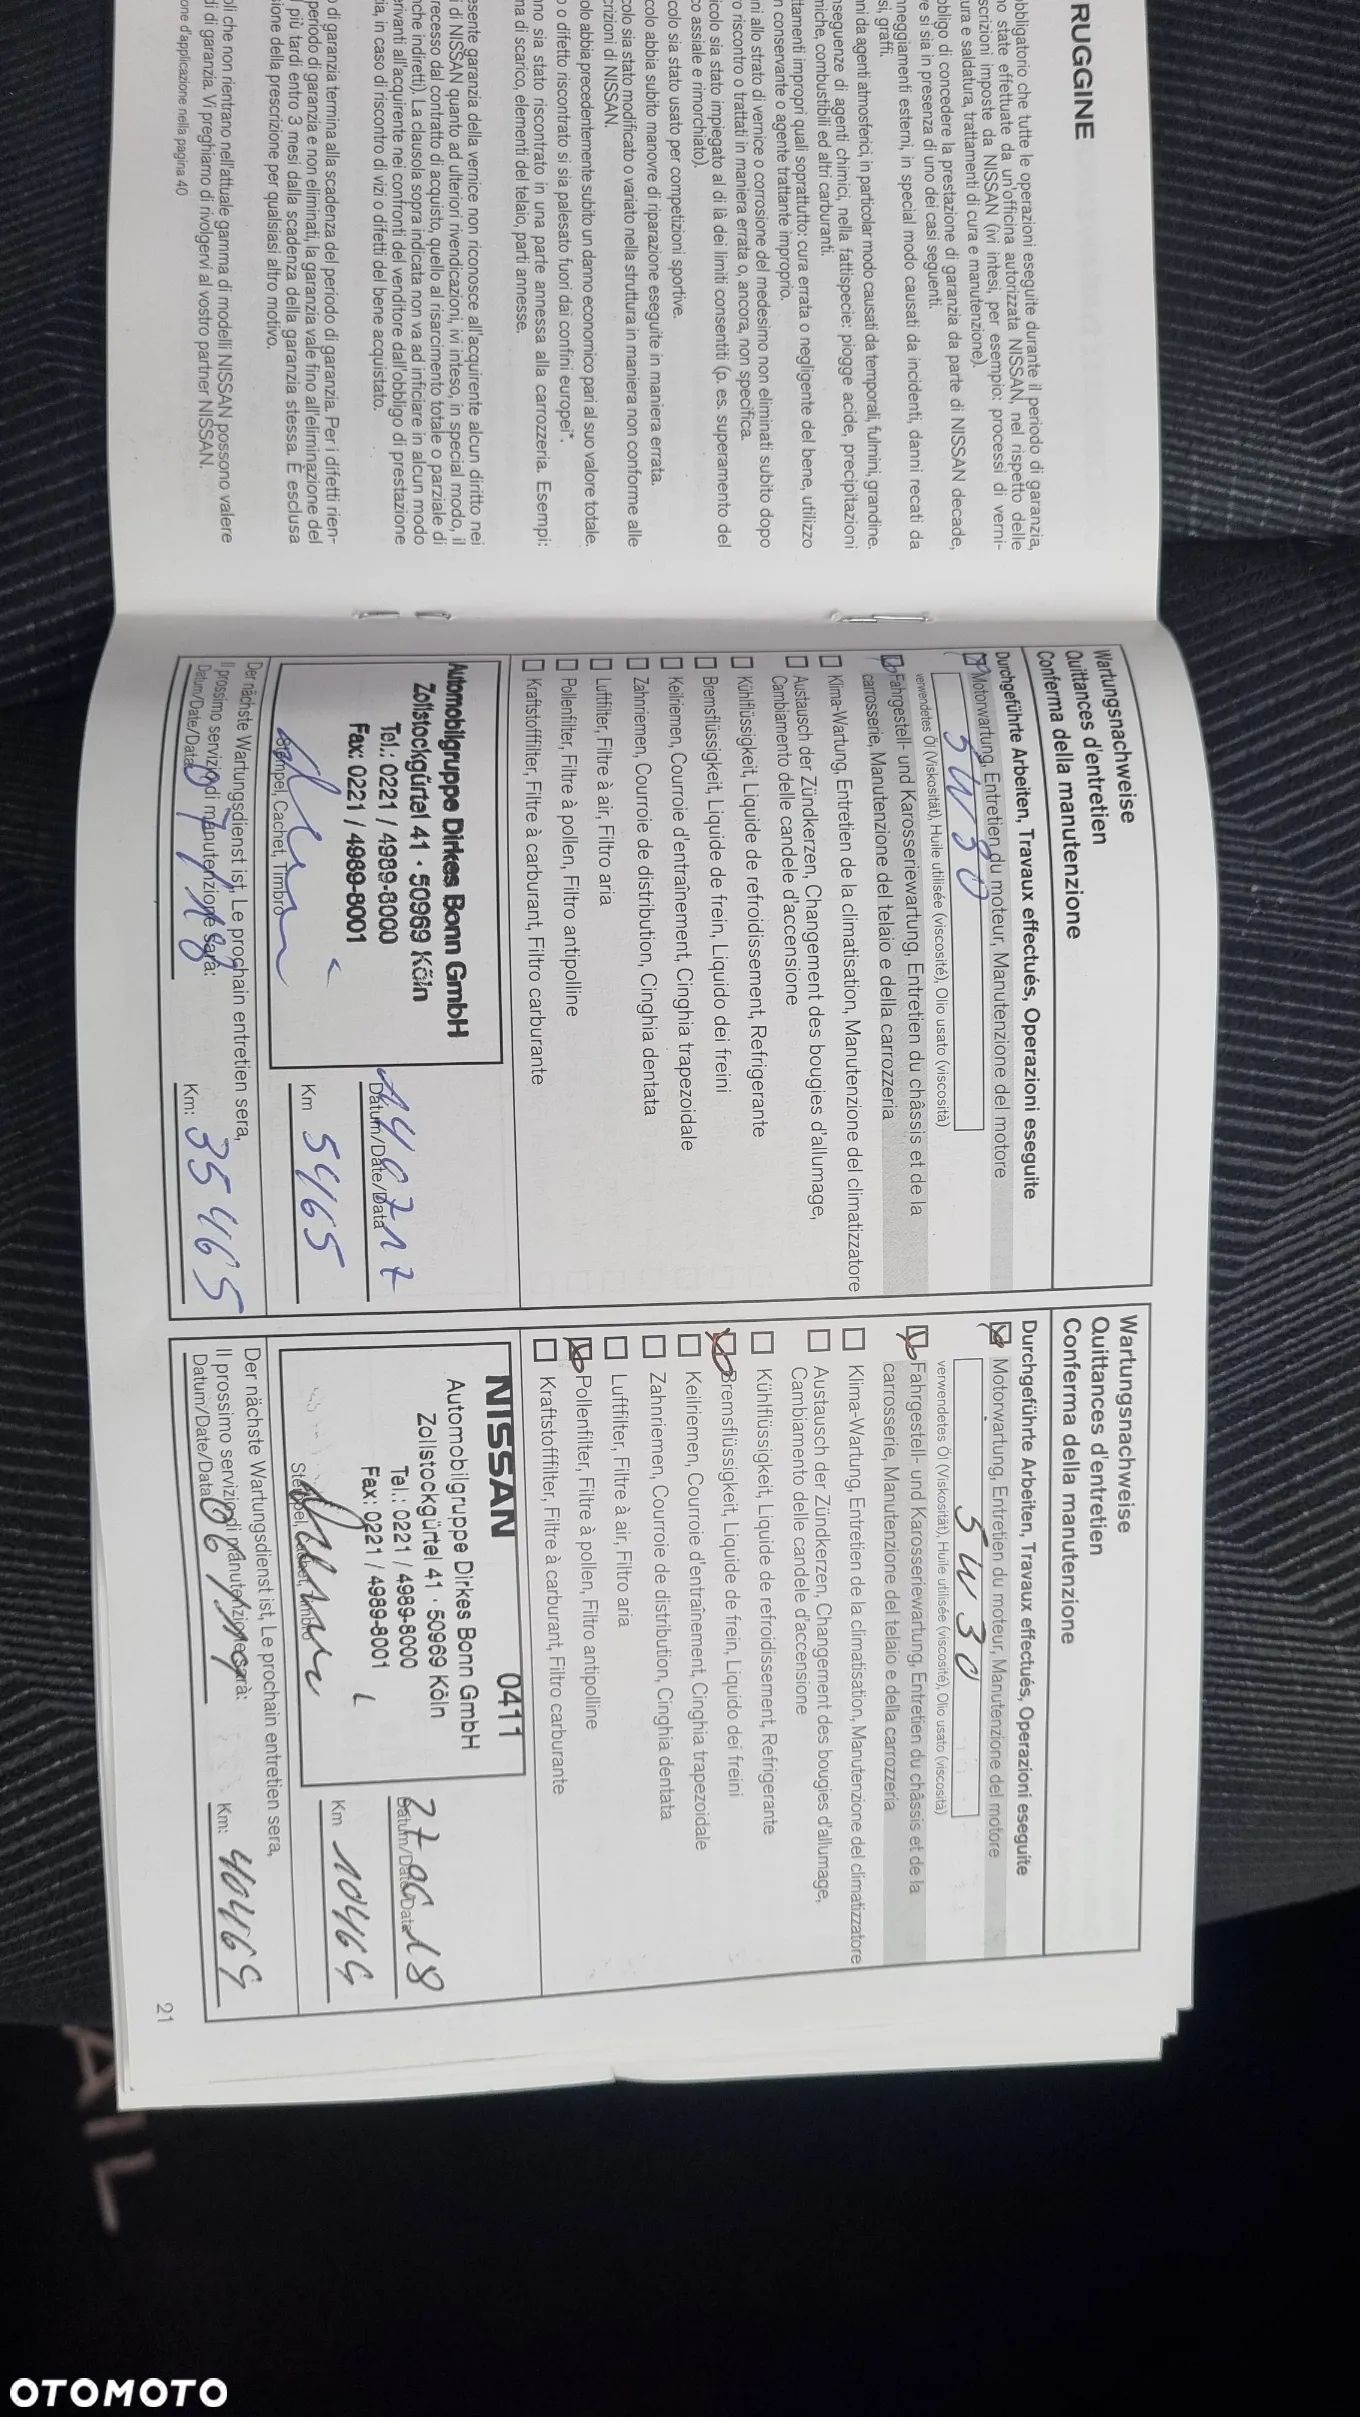 RUGGINE
obbligatorio che tutte le operazioni eseguite durante il periodo di garanzia,
no state effettuate da un'officina autorizzata NISSAN, nel rispetto delle
scrizioni imposte da NISSAN (ivi intesi, per esempio: processi di verni-
ura e saldatura, trattamenti di cura e manutenzione).
obbligo di concedere la prestazione di garanzia da parte di NISSAN decade,
re si sia in presenza di uno dei casi seguenti.
nneggiamenti esterni, in special modo causati da incidenti, danni recati da
si, graffi.
nni da agenti atmosferici, in particolar modo causati da temporali, fulmini, grandine.
nseguenze di agenti chimici, nella fattispecie: piogge acide, precipitazioni
miche, combustibili ed altri carburanti.
ttamenti impropri quali soprattutto: cura errata o negligente del bene, utilizzo
n conservante o agente trattante improprio.
nni allo strato di vernice o corrosione del medesimo non eliminati subito dopo
ro riscontro o trattati in maniera errata o, ancora, non specifica.
icolo sia stato impiegato al di là dei limiti consentiti (p. es. superamento del
co assiale e rimorchiato).
colo sia stato usato per competizioni sportive.
colo abbia subito manovre di riparazione eseguite in maniera errata.
colo sia stato modificato o variato nella struttura in maniera non conforme alle
crizioni di NISSAN.
olo abbia precedentemente subito un danno economico pari al suo valore totale.
o o difetto riscontrato si sia palesato fuori dai confini europei*.
nno sia stato riscontrato in una parte annessa alla carrozzeria. Esempi:
ma di scarico, elementi del telaio, parti annesse.
esente garanzia della vernice non riconosce all'acquirente alcun diritto nei
i di NISSAN quanto ad ulteriori rivendicazioni, ivi inteso, in special modo, il
recesso dal contratto di acquisto, quello al risarcimento totale o parziale di
nche indiretti). La clausola sopra indicata non va ad inficiare in alcun modo
erivanti all'acquirente nei confronti del venditore dall'obbligo di prestazione
zia, in caso di riscontro di vizi o difetti del bene acquistato.
o di garanzia termina alla scadenza del periodo di garanzia. Per i difetti rien-
periodo di garanzia e non eliminati, la garanzia vale fino all'eliminazione del
l più tardi entro 3 mesi dalla scadenza della garanzia stessa. È esclusa
sione della prescrizione per qualsiasi altro motivo.
oli che non rientrano nell'attuale gamma di modelli NISSAN possono valere
di di garanzia. Vi preghiamo di rivolgervi al vostro partner NISSAN.
one d'applicazione nella pagina 40
Wartungsnachweise
Quittances d'entretien
Conferma della manutenzione
Durchgeführte Arbeiten, Travaux effectués, Operazioni eseguite
Motorwartung, Entretien du moteur, Manutenzione del motore
5W30
verwendetes Öl (Viskosität), Huile utilisée (viscosité), Olio usato (viscosità)
Fahrgestell- und Karosseriewartung, Entretien du châssis et de la
carrosserie, Manutenzione del telaio e della carrozzeria
Klima-Wartung, Entretien de la climatisation, Manutenzione del climatizzatore
Austausch der Zündkerzen, Changement des bougies d'allumage,
Cambiamento delle candele d'accensione
Kühlflüssigkeit, Liquide de refroidissement, Refrigerante
Bremsflüssigkeit, Liquide de frein, Liquido dei freini
Keilriemen, Courroie d'entraînement, Cinghia trapezoidale
Zahnriemen, Courroie de distribution, Cinghia dentata
Luftfilter, Filtre à air, Filtro aria
Pollenfilter, Filtre à pollen, Filtro antipolline
Kraftstofffilter, Filtre à carburant, Filtro carburante
Automobilgruppe Dirkes Bonn GmbH
Zollstockgürtel 41 · 50969 Köln
Tel.: 0221 / 4989-8000
Fax: 0221 / 4989-8001
Stempel, Cachet, Timbro
14 07 17
Datum/Date/Data
Km 5465
Der nächste Wartungsdienst ist, Le prochain entretien sera,
Il prossimo servizio di manutenzione sarà:
Datum/Date/Data 07/18
Km: 35465
Wartungsnachweise
Quittances d'entretien
Conferma della manutenzione
Durchgeführte Arbeiten, Travaux effectués, Operazioni eseguite
Motorwartung, Entretien du moteur, Manutenzione del motore
5W30
verwendetes Öl (Viskosität), Huile utilisée (viscosité), Olio usato (viscosità)
Fahrgestell- und Karosseriewartung, Entretien du châssis et de la
carrosserie, Manutenzione del telaio e della carrozzeria
Klima-Wartung, Entretien de la climatisation, Manutenzione del climatizzatore
Austausch der Zündkerzen, Changement des bougies d'allumage,
Cambiamento delle candele d'accensione
Kühlflüssigkeit, Liquide de refroidissement, Refrigerante
Bremsflüssigkeit, Liquide de frein, Liquido dei freini
Keilriemen, Courroie d'entraînement, Cinghia trapezoidale
Zahnriemen, Courroie de distribution, Cinghia dentata
Luftfilter, Filtre à air, Filtro aria
Pollenfilter, Filtre à pollen, Filtro antipolline
Kraftstofffilter, Filtre à carburant, Filtro carburante
NISSAN 0411
Automobilgruppe Dirkes Bonn GmbH
Zollstockgürtel 41 · 50969 Köln
Tel.: 0221 / 4989-8000
Fax: 0221 / 4989-8001
Stempel, Cachet, Timbro
27 06 18
Datum/Date/Data
Km 10469
Der nächste Wartungsdienst ist, Le prochain entretien sera,
Il prossimo servizio di manutenzione sarà:
Datum/Date/Data 06/19
Km: 40469
21
AIL
OTOMOTO